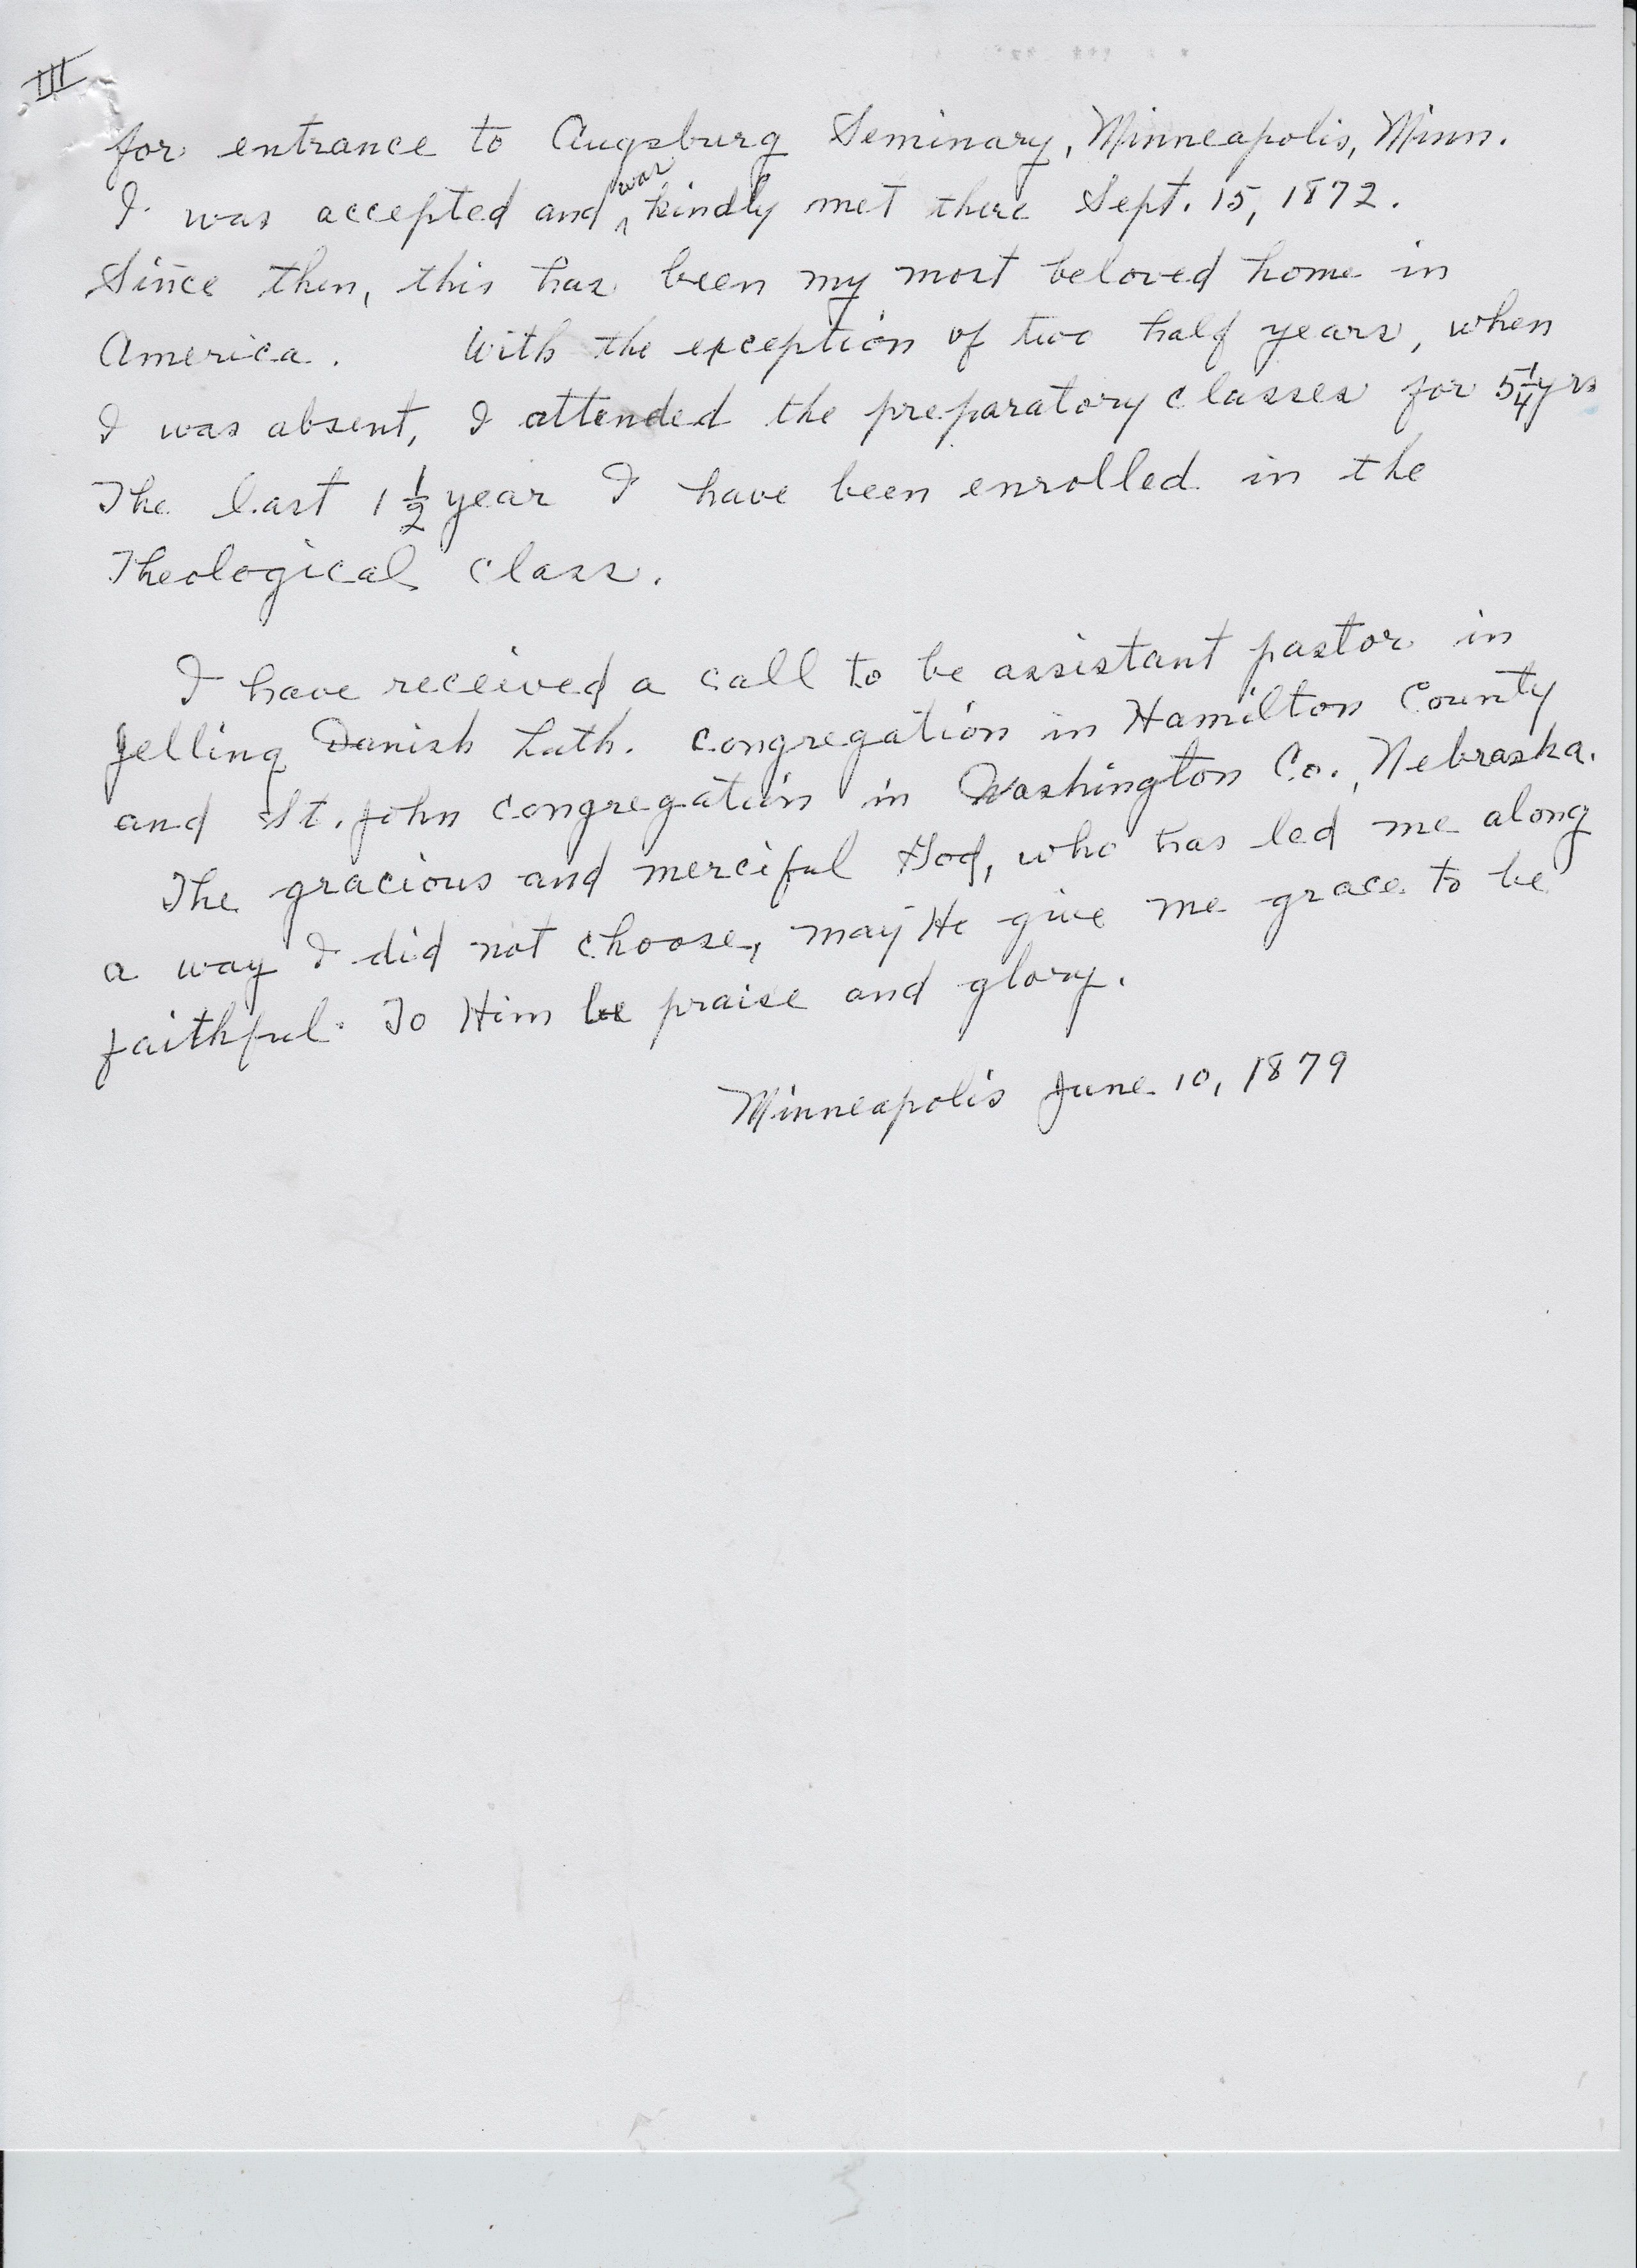 III
for entrance to Augsburg Seminary, Minneapolis, Minn.
I was accepted and was kindly met there Sept. 15, 1872.
Since then, this has been my most beloved home in
America. With the exception of two half years, when
I was absent, I attended the preparatory classes for 5 1/4 yrs
The last 1 1/2 year I have been enrolled in the
Theological class.
I have received a call to be assistant pastor in
Jelling Danish Luth. congregation in Hamilton County
and St. John congregation in Washington Co., Nebraska.
The gracious and merciful God, who has led me along
a way I did not choose, may He give me grace to be
faithful. To Him be praise and glory.
Minneapolis June 10, 1879
3